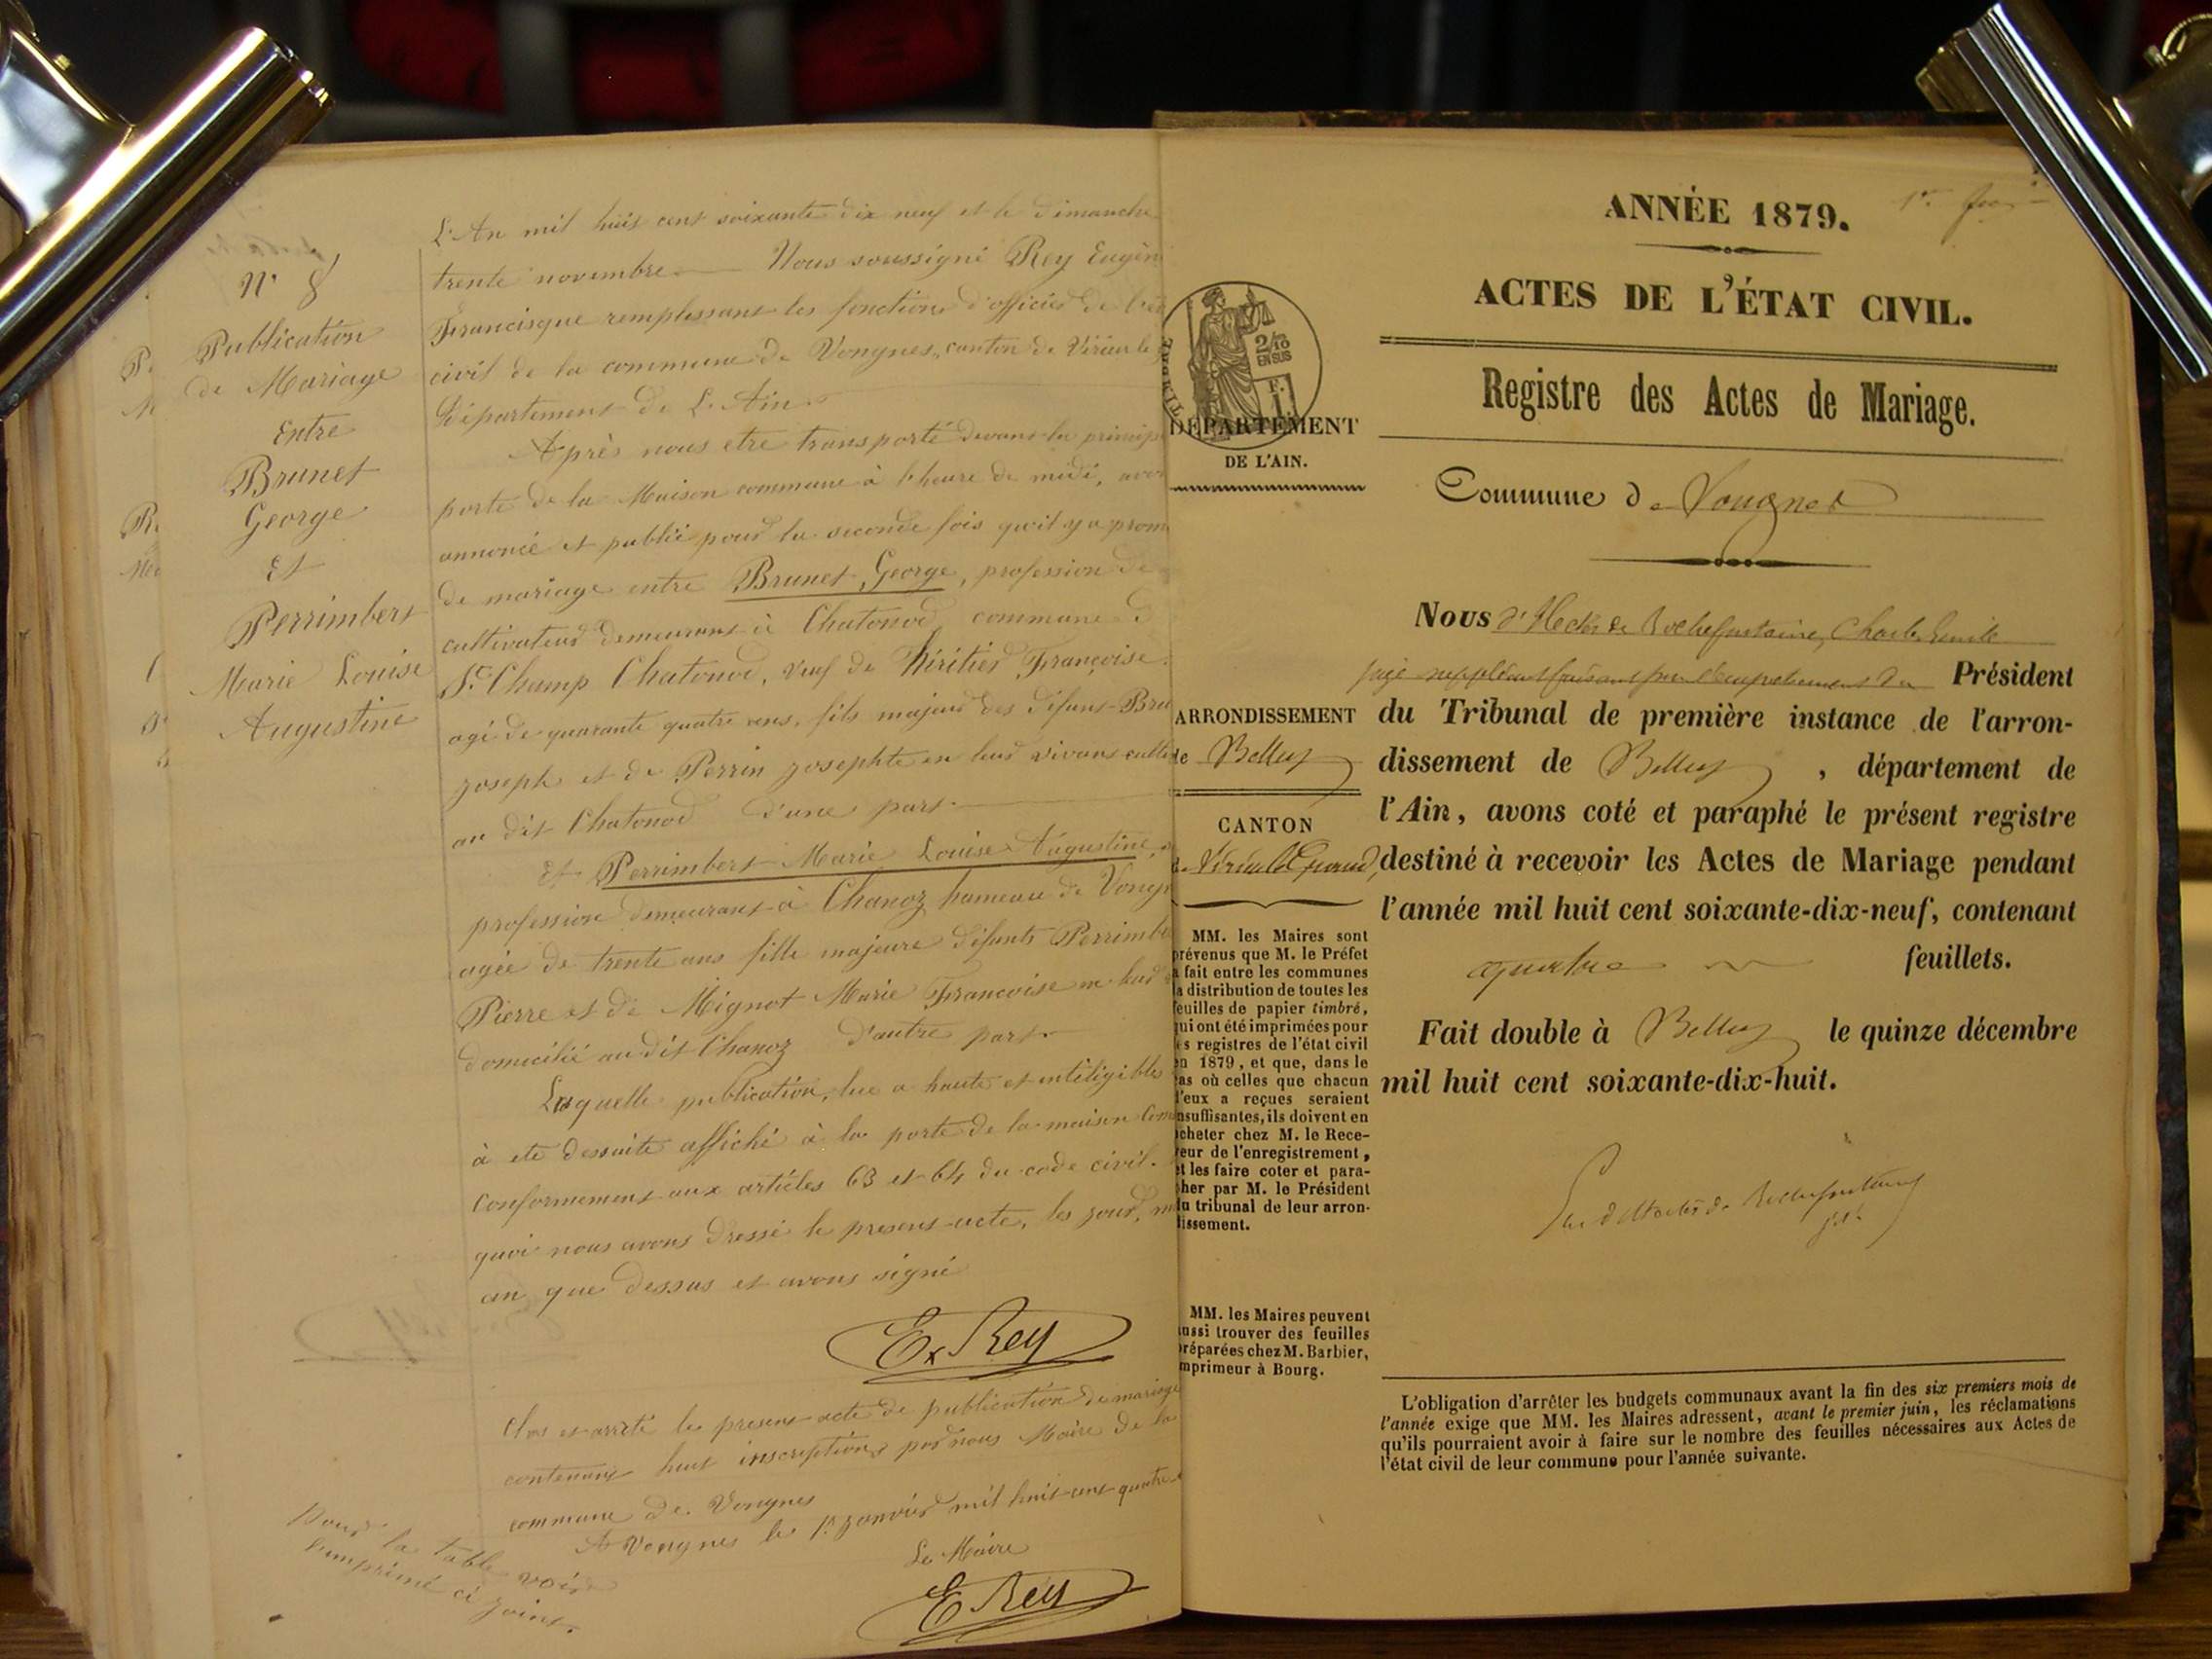 N° 8
Publication
de Mariage
Entre
Brunet
George
Et
Perrimbert
Marie Louise
Augustine
L'An mil huit cent soixante dix neuf et le dimanche
trente novembre Nous soussigné Rey Eugèn
Francisque remplissant les fonctions d'officier de
civil de la commune de Vongnes, canton de Virieu le
Département de L'Ain.
Après nous etre transporté devant la princip
porte de la Maison commune à l'heure de midi, avon
annoncé et publié pour la seconde fois qu'il y a prom
de mariage entre Brunet George, profession de
cultivateur demeurant à Chatonod commune d
St Champ Chatonod, veuf de Héritier Françoise
agé de quarante quatre ans, fils majeur des défunt Bru
Joseph et de Perrin Josephte en leur vivant culti
au dit Chatonod d'une part.
Et Perrimbert Marie Louise Augustine,
profession demeurant à Chanoz hameau de Vong
agée de trente ans fille majeure défunts Perrimbe
Pierre et de Mignot Marie Françoise en leur
domicilié au dit Chanoz d'autre part.
Laquelle publication, lue a haute et intéligible
à ete dessuite affiché à la porte de la maison Com
Conformement aux articles 63 et 64 du code civil.
quoi nous avons dressé le present acte, les jour, m
an que dessus et avons signé
Ex Rey
Clos et arrêté le present acte de publication de mariage
contenant huit inscriptions par nous Maire de la
commune de Vongnes
A Vongnes le 1er Janvier mil huit cent quatre
Le Maire
E Rey
Pour la table voir
l'imprimé ci joint.
1er
ANNÉE 1879.
ACTES DE L'ÉTAT CIVIL.
Registre des Actes de Mariage.
2/10
EN SUS
F.
DÉPARTEMENT
DE L'AIN.
Commune de Vongnes
Nous d'Hectôr de Rochefontaine, Charles Emile
juge suppléant faisant pour l'empêchement du Président
du Tribunal de première instance de l'arron-
dissement de Belley, département de
l'Ain, avons coté et paraphé le présent registre
destiné à recevoir les Actes de Mariage pendant
l'année mil huit cent soixante-dix-neuf, contenant
quatre feuillets.
Fait double à Belley le quinze décembre
mil huit cent soixante-dix-huit.
ARRONDISSEMENT
de Belley
CANTON
de Virieu le Grand
MM. les Maires sont
prévenus que M. le Préfet
a fait entre les communes
la distribution de toutes les
feuilles de papier timbré,
qui ont été imprimées pour
les registres de l'état civil
en 1879, et que, dans le
cas où celles que chacun
d'eux a reçues seraient
insuffisantes, ils doivent en
acheter chez M. le Rece-
veur de l'enregistrement,
et les faire coter et para-
pher par M. le Président
du tribunal de leur arron-
dissement.
MM. les Maires peuvent
aussi trouver des feuilles
préparées chez M. Barbier,
imprimeur à Bourg.
L'obligation d'arrêter les budgets communaux avant la fin des six premiers mois de
l'année exige que MM. les Maires adressent, avant le premier juin, les réclamations
qu'ils pourraient avoir à faire sur le nombre des feuilles nécessaires aux Actes de
l'état civil de leur commune pour l'année suivante.